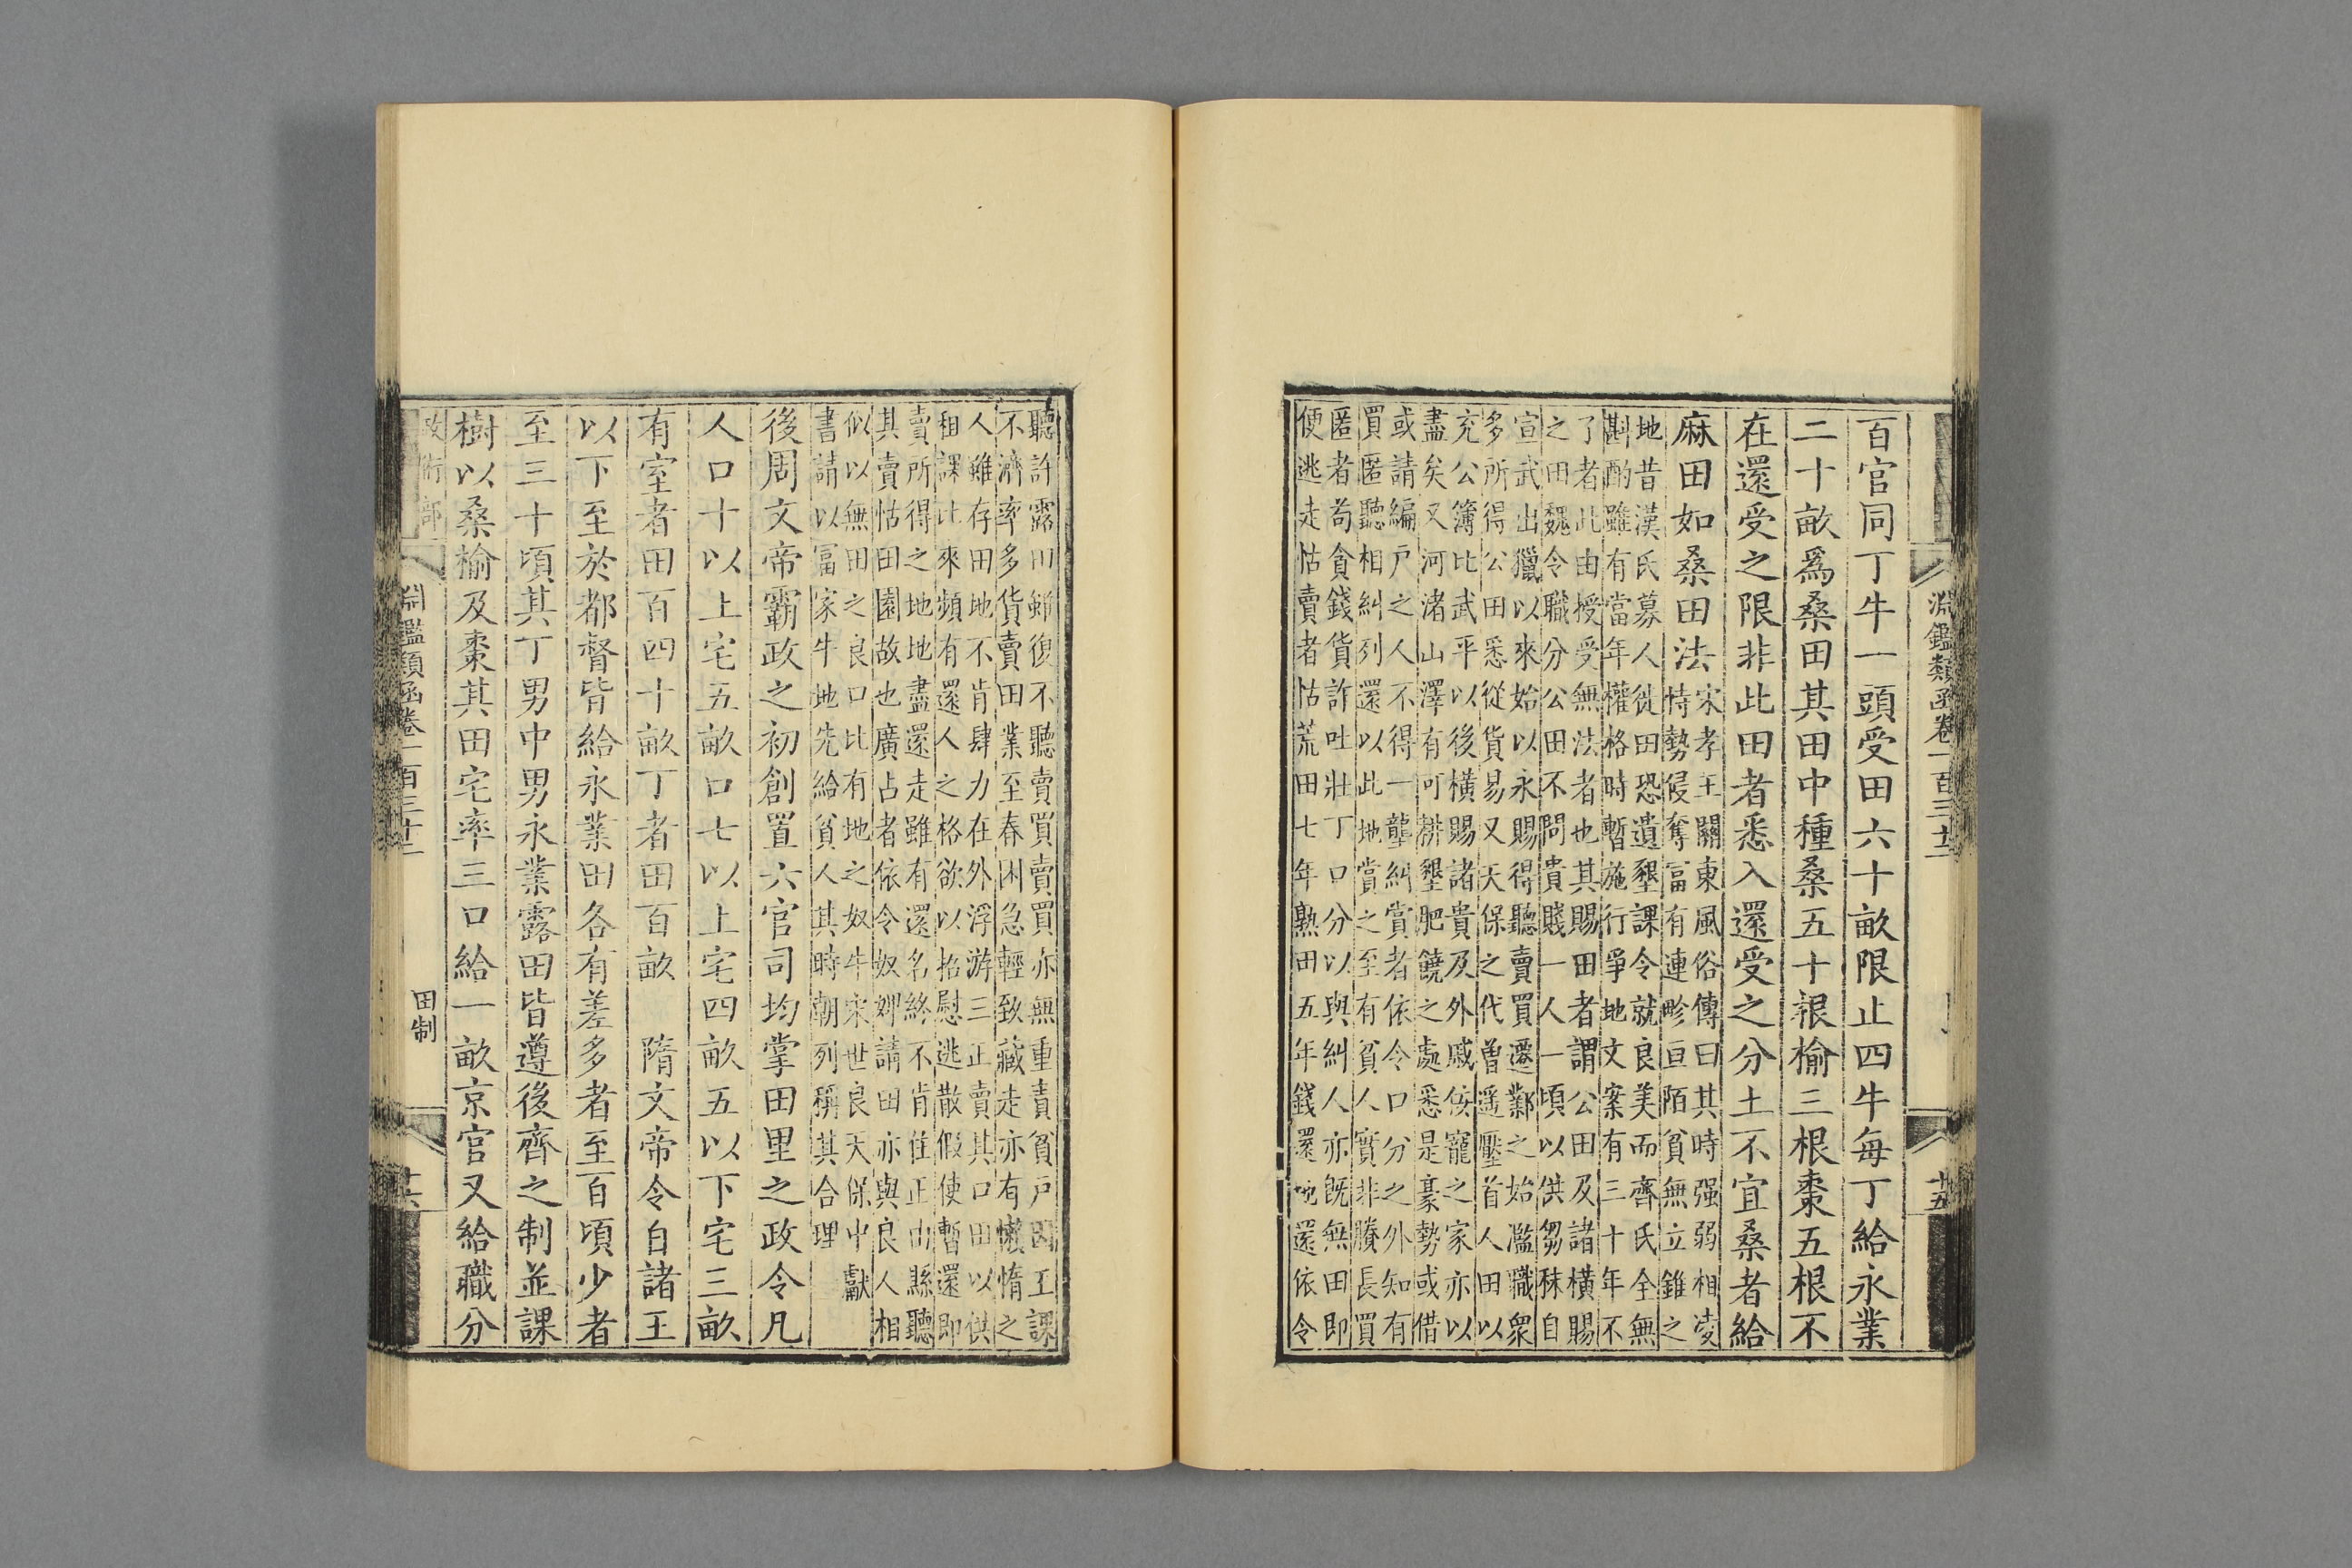 淵鑑類函卷一百三十二
十五
百官同丁牛一頭受田六十畝限止四牛每丁給永業
二十畝爲桑田其田中種桑五十根榆三根棗五根不
在還受之限非此田者悉入還受之分土不宜桑者給
麻田如桑田法
宋孝王關東風俗傳曰其時强弱相凌
恃勢侵奪富有連畛亘陌貧無立錐之
地昔漢氏募人徙田恐遺墾課令就良美而齊氏全無
斟酌雖有當年權格時暫施行爭地文案有三十年不
了者此由授受無法者也其賜田者謂公田及諸橫賜
之田魏令職分公田不問貴賤一人一頃以供芻秣自
宣武出獵以來始以永賜得聽賣買遷鄴之始濫職衆
多所得公田悉從貨易又天保之代曾遥壓首人田以
充公簿比武平以後橫賜諸貴及外戚佞寵之家亦以
盡矣又河渚山澤有可耕墾肥饒之處悉是豪勢或借
或請編戶之人不得一壟糾賞者依令口分之外知有
買匿聽相糾列還以此地賞之至有貧人實非賸長買
匿者苟貪錢貨詐吐壯丁口分以與糾人亦旣無田即
便逃走怙賣者怙荒田七年熟田五年錢還地還依令
聽許露田雖復不聽賣買賣買亦無重責貧戶因王課
不濟率多貨賣田業至春困急輕致藏走亦有懶惰之
人雖存田地不肯肆力在外浮游三正賣其口田以供
租課比來頻有還人之格欲以招慰逃散假使暫還即
賣所得之地地盡還走雖有還名終不肯住正由縣聽
其賣怙田園故也廣占者依令奴婢請田亦與良人相
似以無田之良口比有地之奴牛宋世良天保中獻
書請以富家牛地先給貧人其時朝列稱其合理
後周文帝霸政之初創置六官司均掌田里之政令凡
人口十以上宅五畝口七以上宅四畝五以下宅三畝
有室者田百四十畝丁者田百畝　隋文帝令自諸王
以下至於都督皆給永業田各有差多者至百頃少者
至三十頃其丁男中男永業露田皆遵後齊之制並課
樹以桑榆及棗其田宅率三口給一畝京官又給職分
政術部
淵鑑類函卷一百三十二
田制
十六